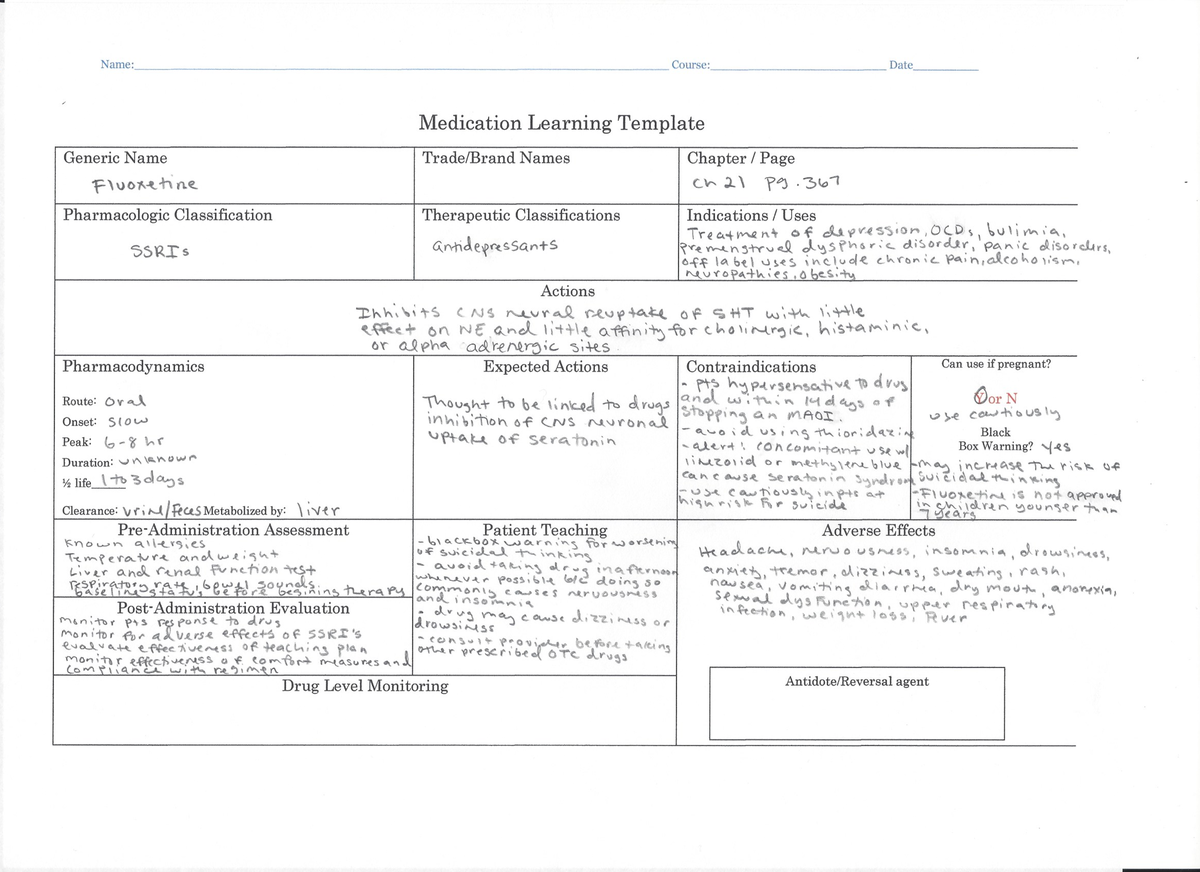 Name: Course: Date
Medication Learning Template
Generic Name
Fluoxetine
Trade/Brand Names
Chapter / Page
Ch 21 Pg. 367
Pharmacologic Classification
SSRIs
Therapeutic Classifications
antidepressants
Indications / Uses
Treatment of depression, OCDs, bulimia,
premenstrual dysphoric disorder, panic disorders,
off label uses include chronic pain, alcoholism,
neuropathies, obesity
Actions
Inhibits CNS neural reuptake of 5HT with little
effect on NE and little affinity for cholinergic, histaminic,
or alpha adrenergic sites
Pharmacodynamics
Route: Oral
Onset: Slow
Peak: 6-8 hr
Duration: unknown
½ life 1 to 3 days
Clearance: urine/feces Metabolized by: liver
Expected Actions
Thought to be linked to drugs
inhibition of CNS neuronal
uptake of seratonin
Contraindications
- pts hypersensative to drug
and within 14 days of
stopping an MAOI.
- avoid using thioridazin
- alert! concomitant use w/
linezolid or methylene blue
can cause seratonin syndrom
- use cautiously in pts at
high risk for suicide
Can use if pregnant?
Y or N
use cautiously
Black
Box Warning? yes
- may increase the risk of
suicidal thinking
- Fluoxetine is not approved
in children younger than
7 years
Pre-Administration Assessment
Known allergies
Temperature and weight
Liver and renal function test
respiratory rate, bowel sounds.
baseline status before begining therapy
Post-Administration Evaluation
monitor pts response to drug
monitor for adverse effects of SSRI's
evaluate effectiveness of teaching plan
monitor effectiveness of comfort measures and
compliance with regimen
Patient Teaching
- blackbox warning for worsening
of suicidal thinking
- avoid taking drug in afternoon
whenever possible b/c doing so
commonly causes nervousness
and insomnia
- drug may cause dizziness or
drowsiness
- consult provider before taking
other prescribed OTC drugs
Adverse Effects
Headache, nervousness, insomnia, drowsiness,
anxiety, tremor, dizziness, sweating, rash,
nausea, vomiting diarrhea, dry mouth, anorexia,
sexual dysfunction, upper respiratory
infection, weight loss, fever
Drug Level Monitoring
Antidote/Reversal agent